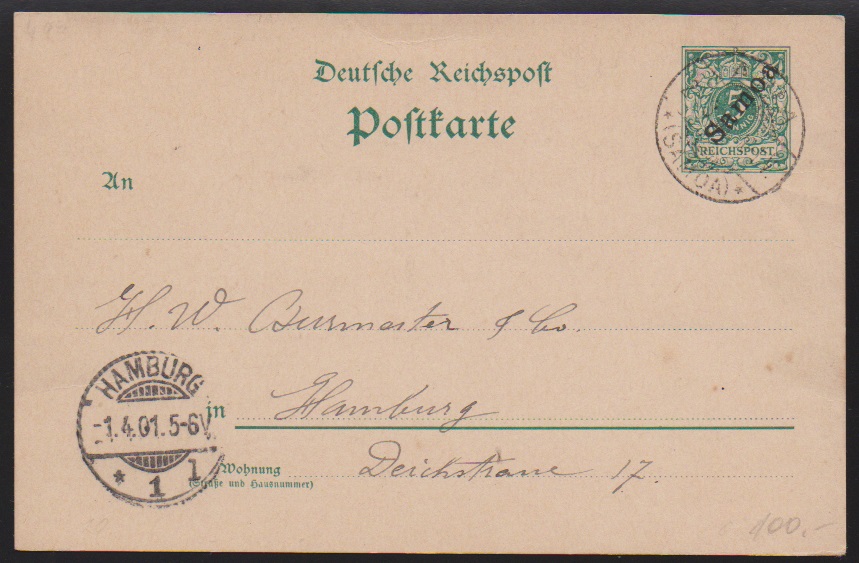 Deutsche Reichspost
Postkarte
Samoa
5
REICHSPOST
* (SAMOA) *
An
H. W. Burmester & Co.
HAMBURG
-1.4.01.5-6V.
* 1 1
in Hamburg
Wohnung Deichstrasse 17.
(Straße und Hausnummer)
100,-